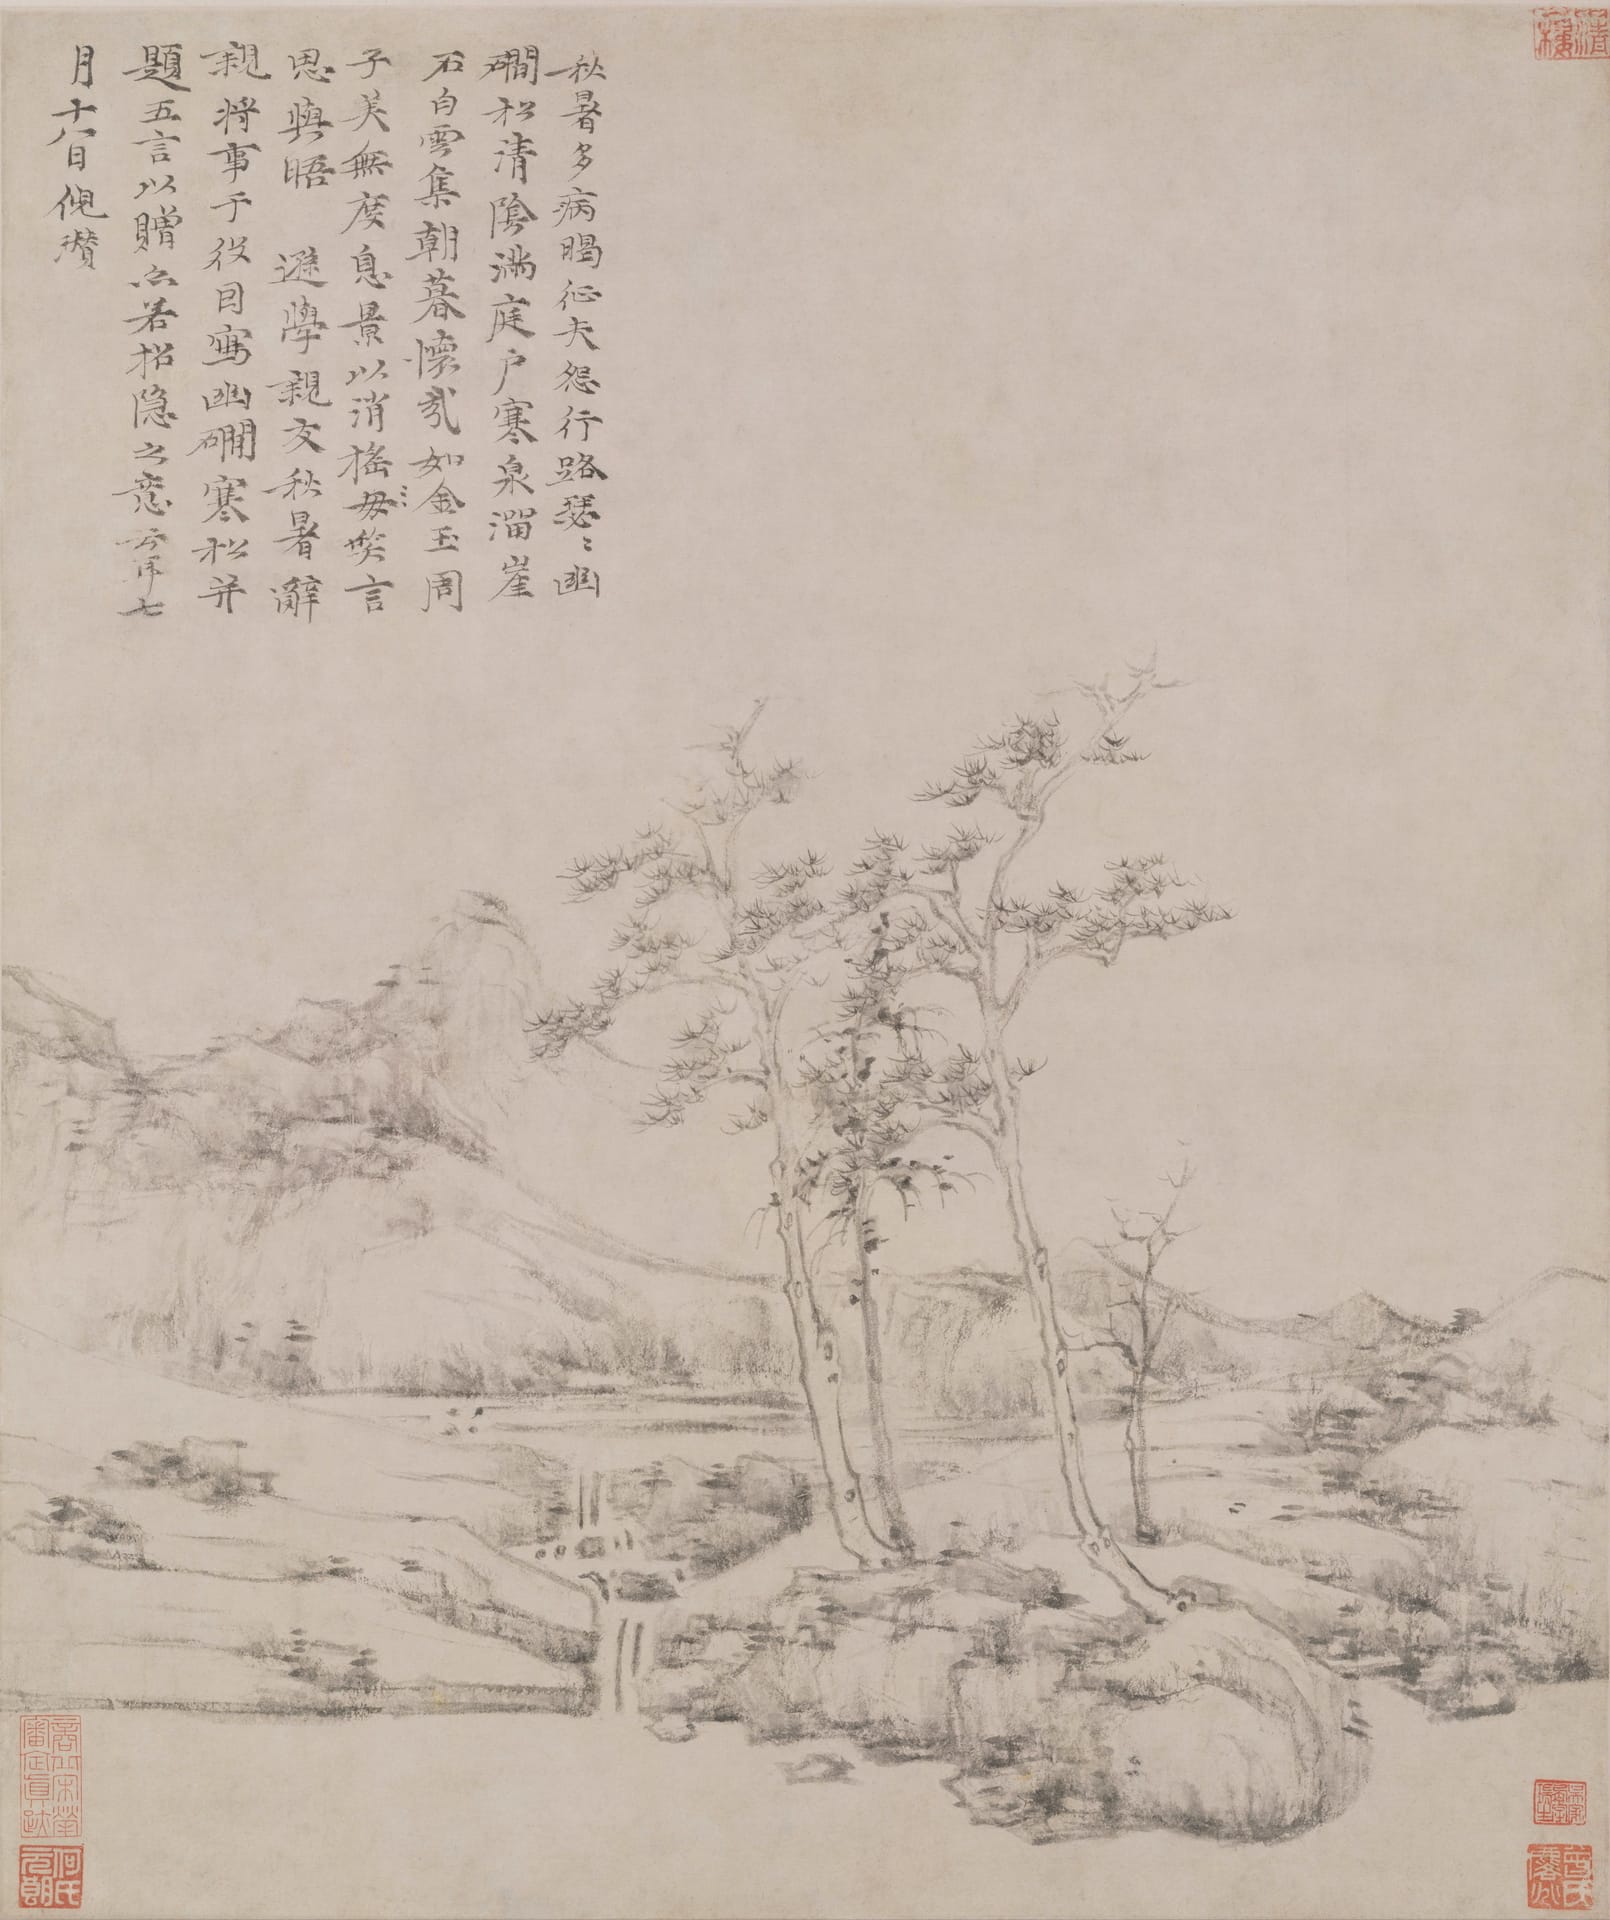 秋暑多病暍征夫怨行路瑟〻幽
磵松清陰滿庭户寒泉溜崖
石白雲集朝暮懷哉如金玉周
子美無度息景以消搖毋笑言
思與晤 遜學親友秋暑辭
親將事于役因寫幽磵寒松并
題五言以贈亦若招隐之意云耳七
月十八日倪瓚
商丘宋犖
審定真跡
何氏
元朗